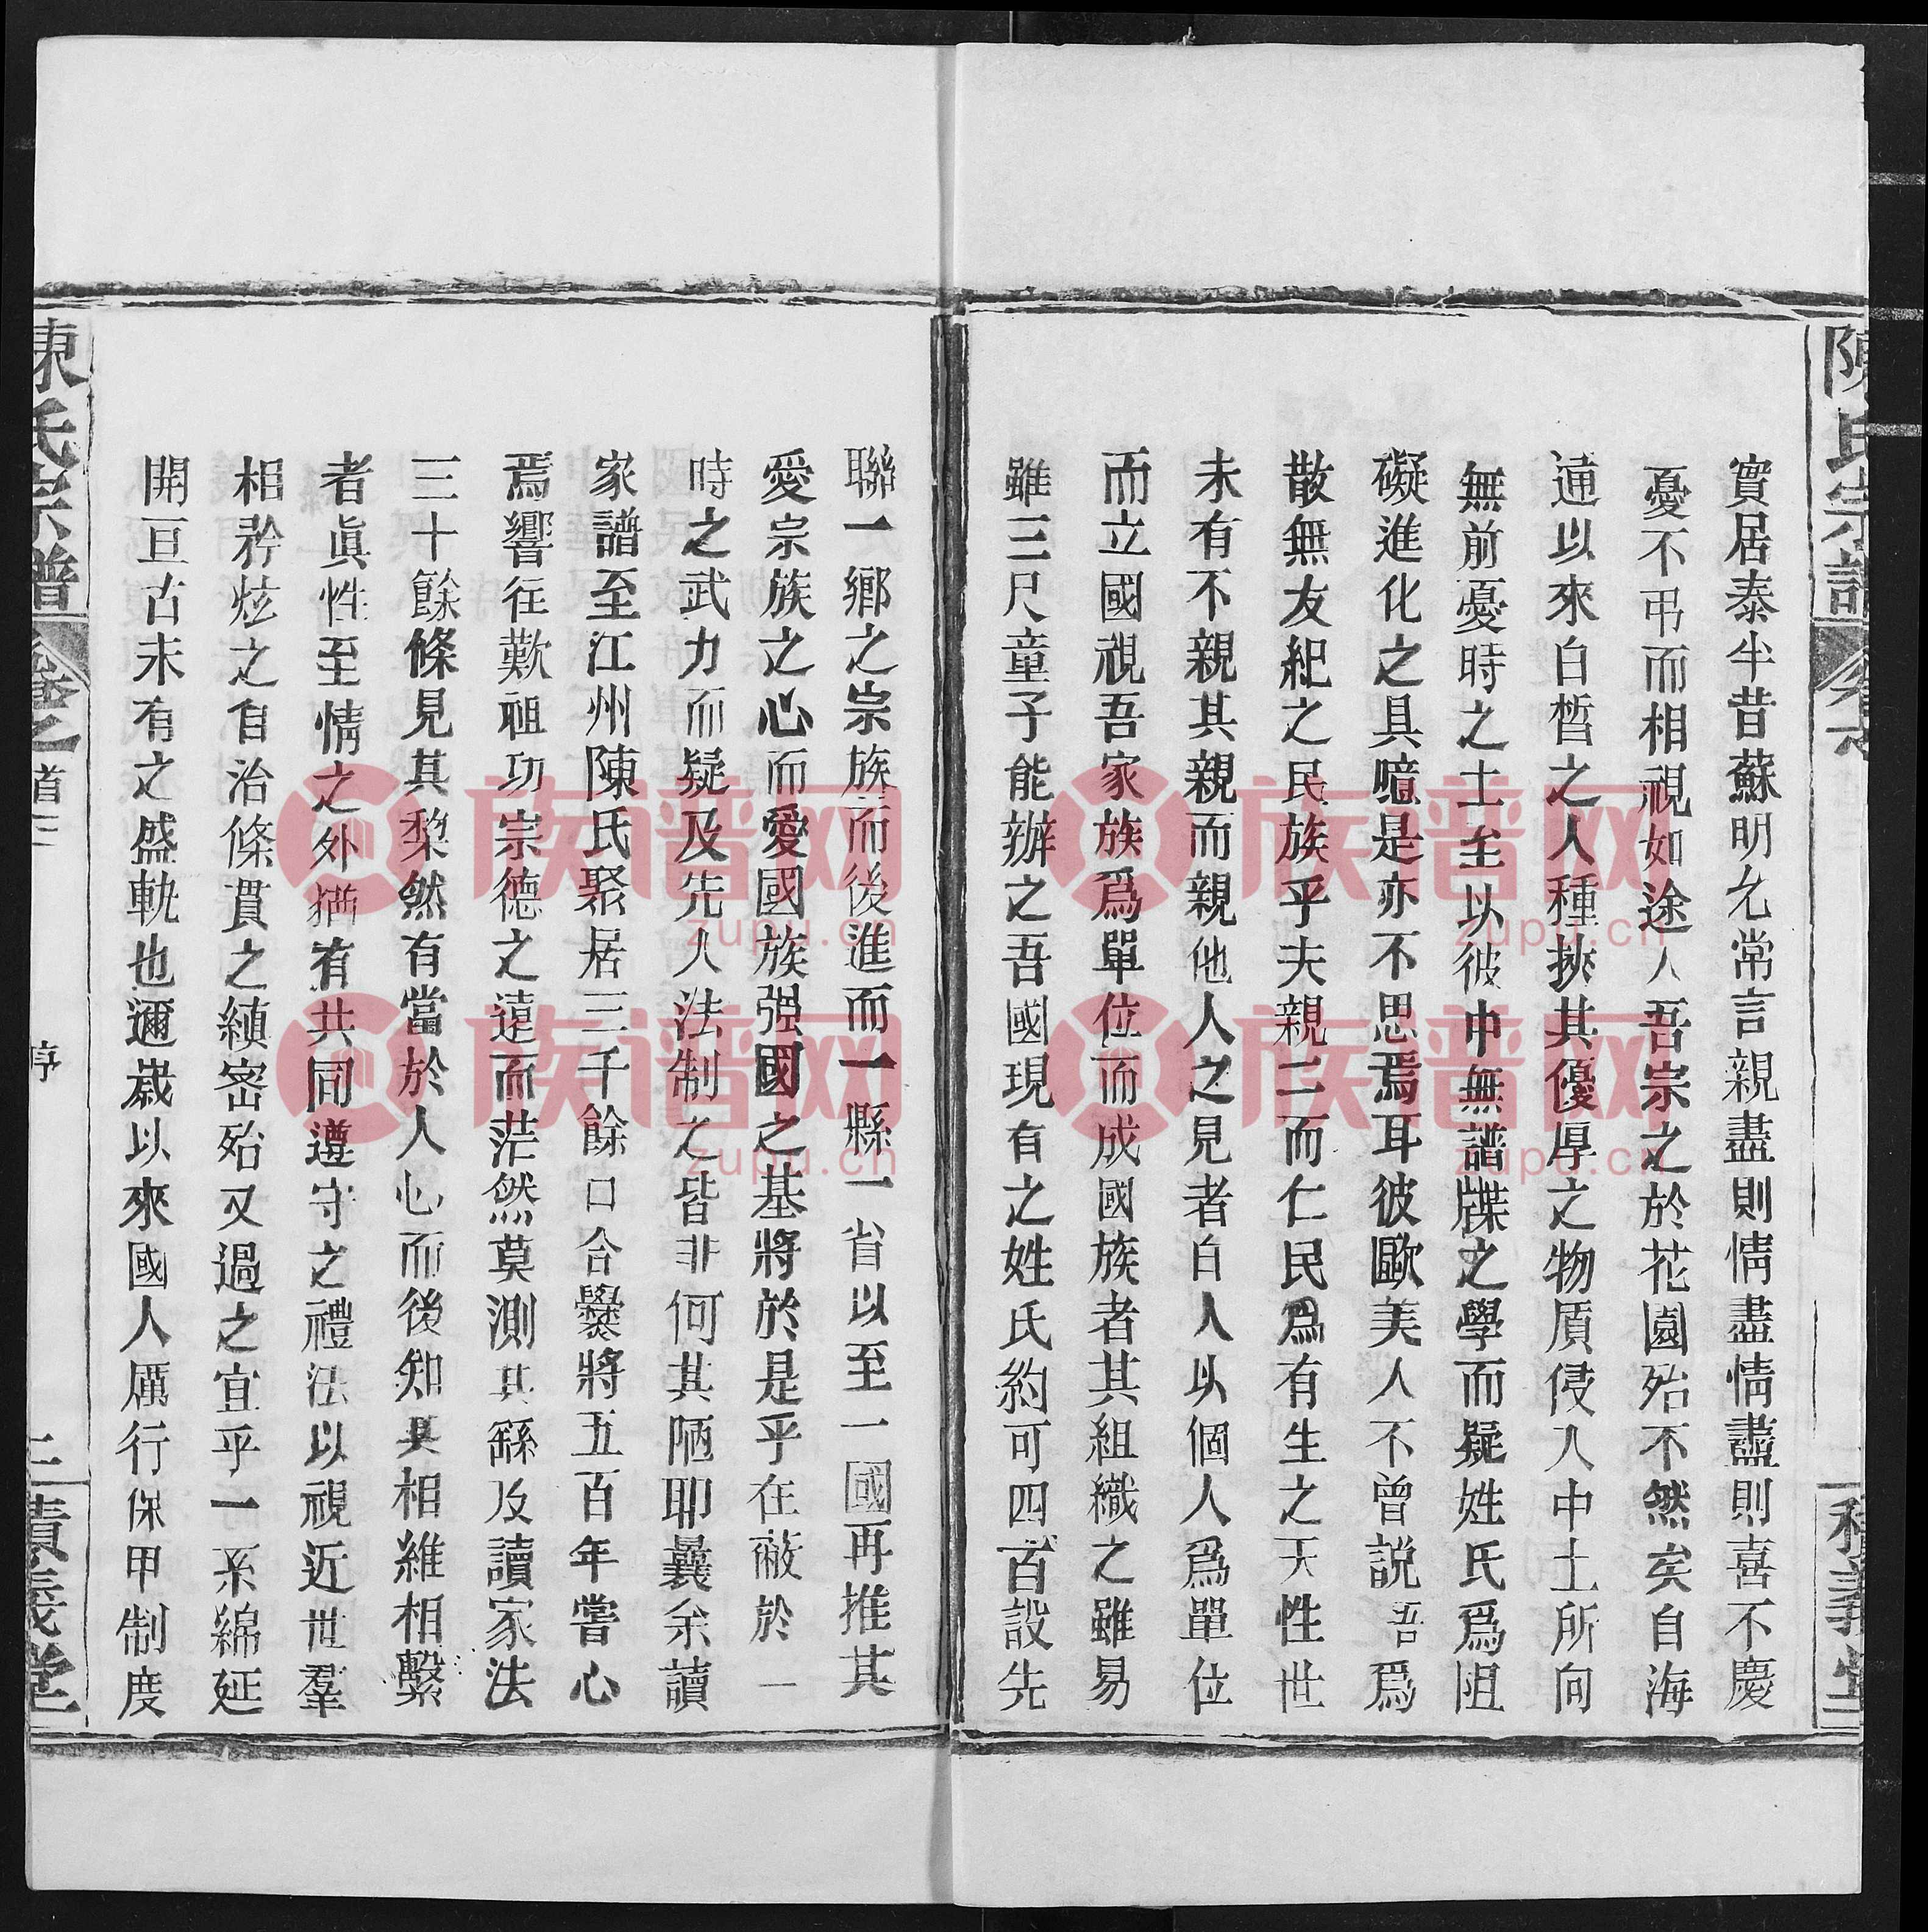 實居泰半昔蘇明允常言親盡則情盡情盡則喜不慶
憂不弔而相視如途人吾宗之於花園殆不然矣自海
通以來白皙之人種挾其優厚之物質侵入中土所向
無前憂時之士至以彼中無譜牒之學而疑姓氏爲阻
礙進化之具噫是亦不思焉耳彼歐美人不曾説吾爲
散無友紀之民族乎夫親二而仁民爲有生之天性世
未有不親其親而親他人之見者白人以個人爲單位
而立國視吾家族爲單位而成國族者其組織之雖易
雖三尺童子能辦之吾國現有之姓氏約可四百設先
聯一鄉之宗族而後進而一縣一省以至一國再推其
愛宗族之心而愛國族强國之基將於是乎在蔽於一
時之武力而疑及先人法制之皆非何其陋耶曩余讀
家譜至江州陳氏聚居三千餘口合爨將五百年嘗心
焉響往歎祖功宗德之遠而茫然莫測其繇及讀家法
三十餘條見其犂然有當於人心而後知其相維相繫
者眞性至情之外猶有共同遵守之禮法以視近世羣
相矜炫之自治條貫之縝密殆又過之宜乎一系綿延
開亘古未有之盛軌也邇歲以來國人厲行保甲制度
陳氏宗譜
卷之首
序
三
積義堂
族谱网
zupu.cn
族谱网
zupu.cn
族谱网
zupu.cn
族谱网
zupu.cn